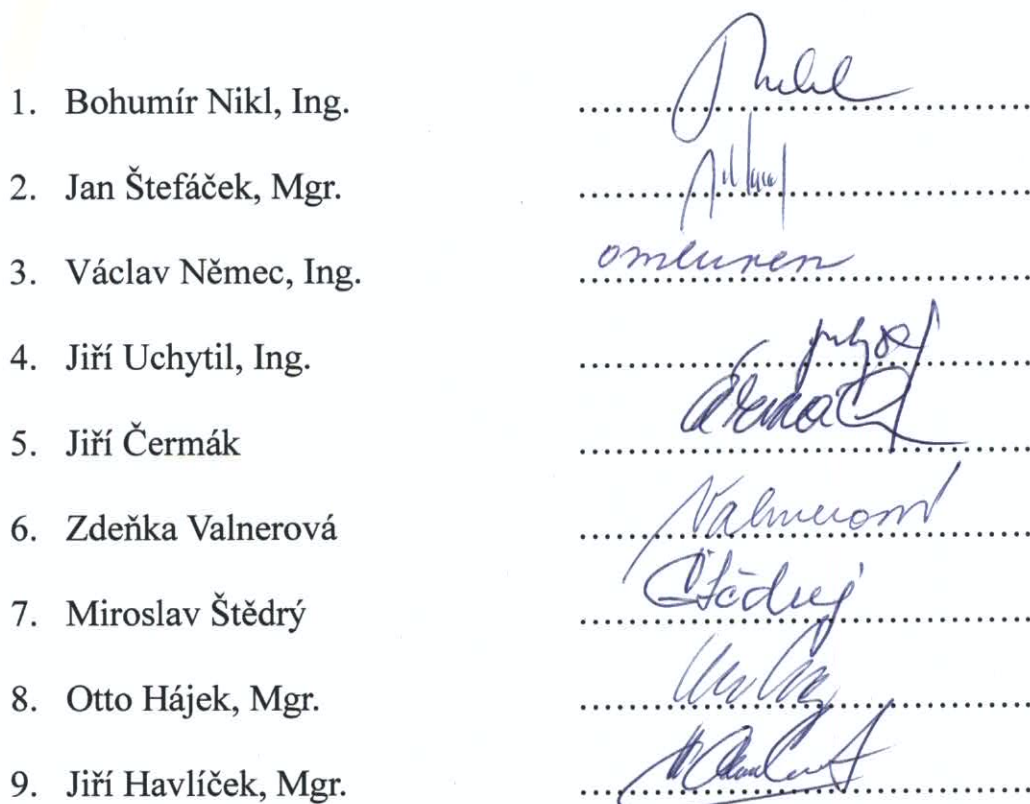 1. Bohumír Nikl, Ing.
2. Jan Štefáček, Mgr.
3. Václav Němec, Ing. omluven
4. Jiří Uchytil, Ing.
5. Jiří Čermák Čermák
6. Zdeňka Valnerová Valnerová
7. Miroslav Štědrý Štědrý
8. Otto Hájek, Mgr.
9. Jiří Havlíček, Mgr.